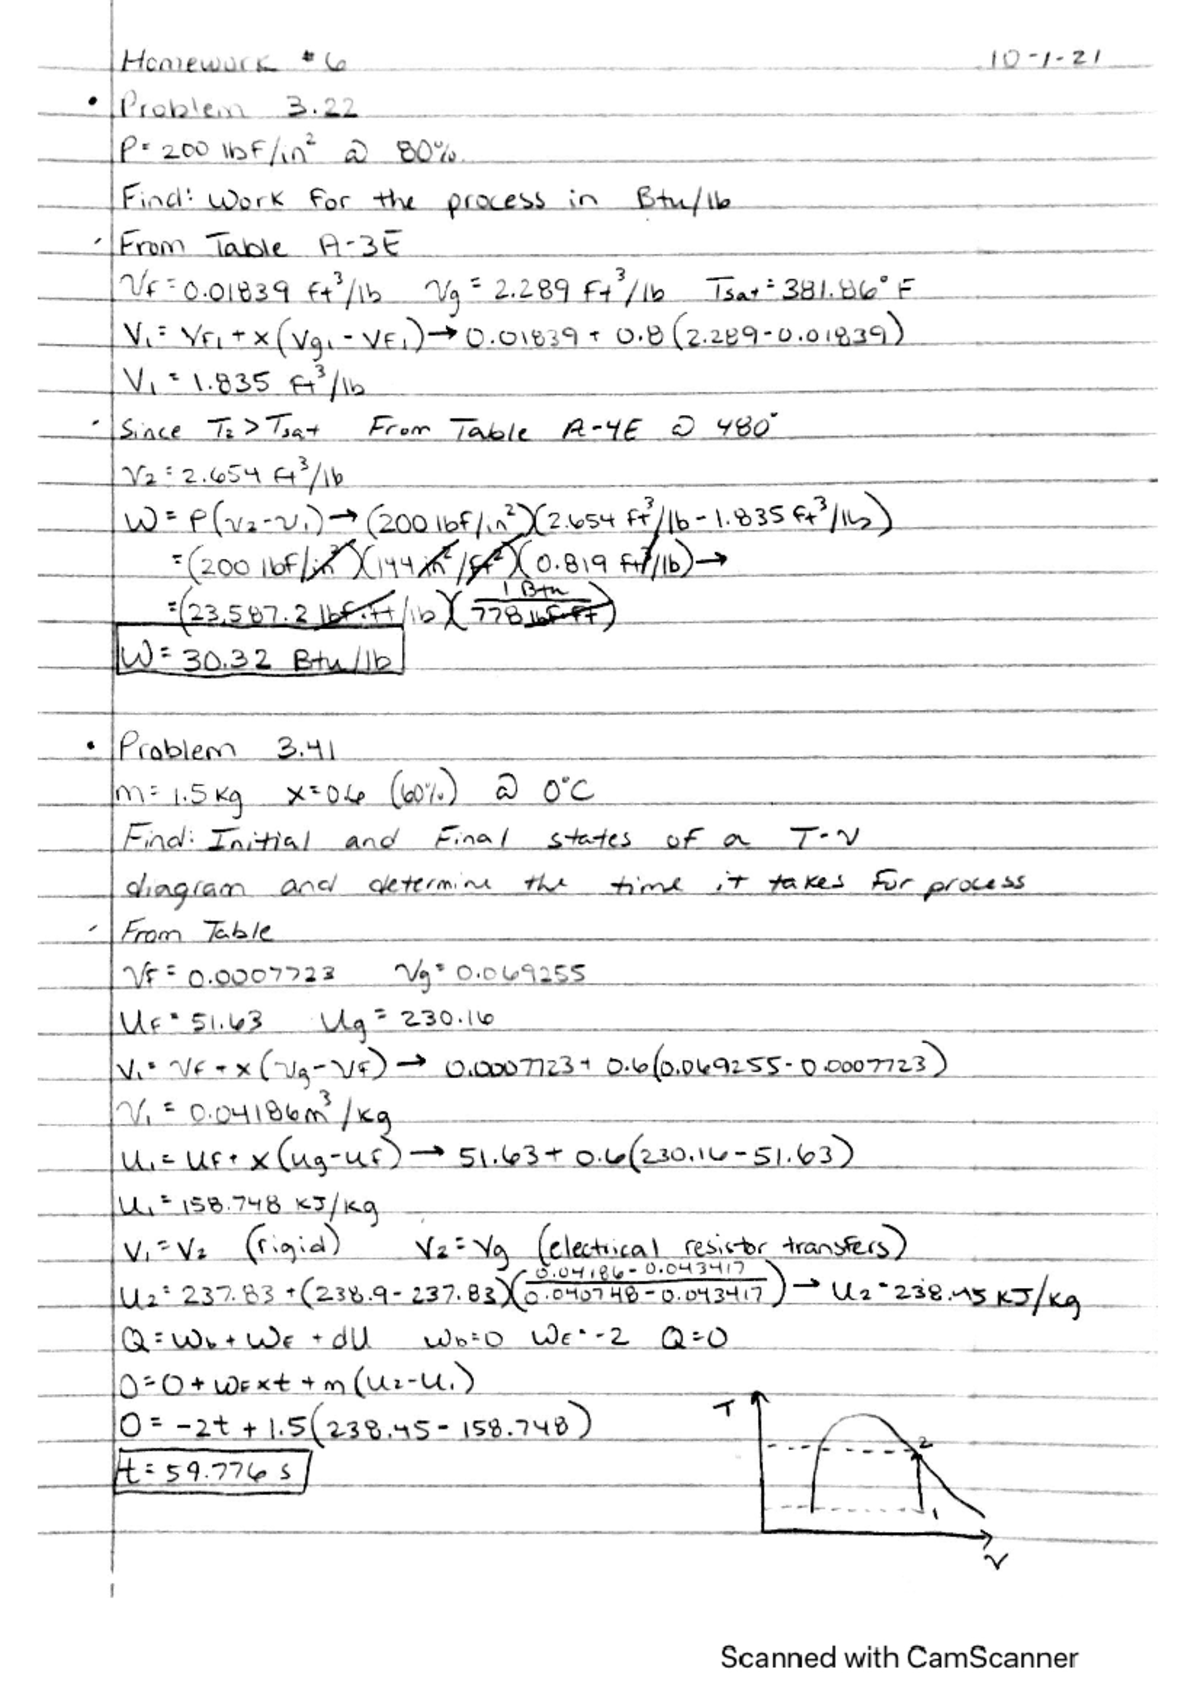 Homework #6 10-1-21
• Problem 3.22
P= 200 lbf/in² @ 80%.
Find: Work for the process in Btu/lb
- From Table A-3E
Vf = 0.01839 ft³/lb Vg = 2.289 ft³/lb Tsat = 381.86° F
V₁ = Vf₁ + x(Vg₁ - Vf₁) → 0.01839 + 0.8(2.289-0.01839)
V₁ = 1.835 ft³/lb
- Since T₂ > Tsat From Table A-4E @ 480°
V₂ = 2.654 ft³/lb
W = P(V₂-V₁) → (200 lbf/in²)(2.654 ft³/lb - 1.835 ft³/lb)
=(200 lbf/in²)(144 in²/ft²)(0.819 ft³/lb) →
=(23,587.2 lbf·ft/lb)(1 Btu / 778 lbf·ft)
W = 30.32 Btu/lb
• Problem 3.41
m= 1.5 kg x=0.6 (60%) @ 0°C
Find: Initial and Final states of a T-v
diagram and determine the time it takes for process
- From Table
Vf = 0.0007723 Vg = 0.069255
Uf = 51.63 Ug = 230.16
V₁ = Vf + x(Vg-Vf) → 0.0007723 + 0.6(0.069255-0.0007723)
V₁ = 0.04186 m³/kg
U₁ = Uf + x(Ug-Uf) → 51.63 + 0.6(230.16-51.63)
U₁ = 158.748 kJ/kg
V₁ = V₂ (rigid) V₂ = Vg (electrical resistor transfers)
U₂ = 237.83 + (238.9-237.83)(0.04186-0.043417 / 0.040748-0.043417) → U₂ = 238.45 kJ/kg
Q = Wb + WE + dU Wb=0 WE=-2 Q=0
0=0+WE xt + m(U₂-U₁)
0 = -2t + 1.5(238.45-158.748)
t = 59.776 s
T
2
1
v
Scanned with CamScanner